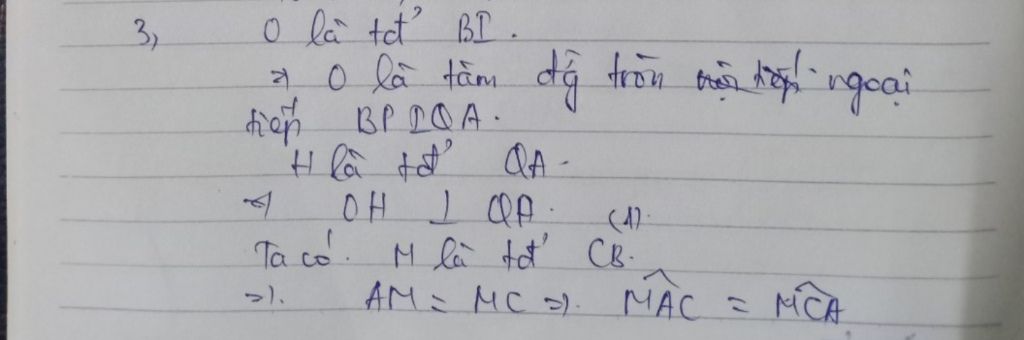 3, O là tđ' BI.
=> O là tâm đg tròn nội tiếp ngoại
tiếp BPIQA.
H là tđ' QA.
=> OH ⊥ QA. (1).
Ta có. M là tđ' CB.
=>. AM = MC =>. \widehat{MAC} = \widehat{MCA}